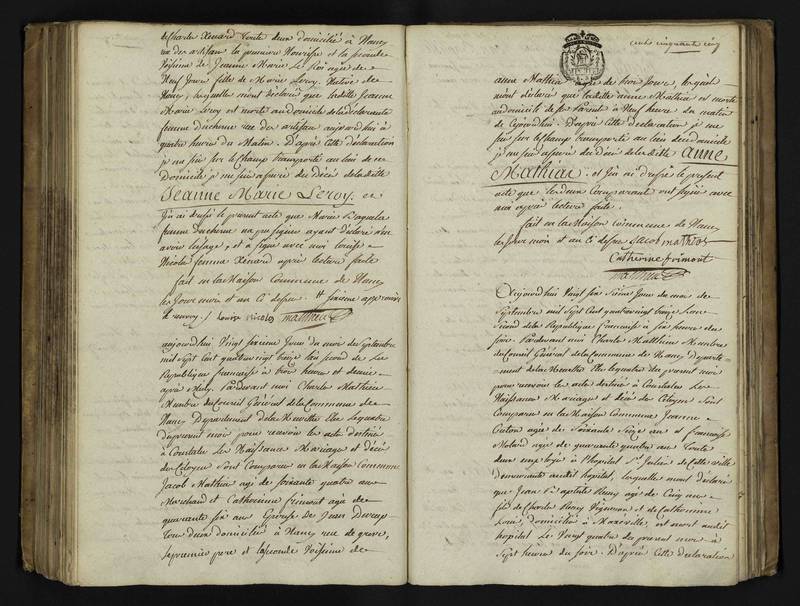 de Charles Xenard toute deux domicilié à Nancy
rue des artisan la premiere Nourisse et la seconde
Voisine de Jeanne Marie Le Roi agée de
Neuf Jours fille de Marie Leroy Native de
Nancy, lesquelle mont déclaré que laditte Jeanne
Marie Leroy est morte au domicile de la déclarante
femme duchene rue des artisan aujourdhui à
quatre heures du Matin. D'après cette déclaration
je me suis sur le Champ transporté au lieu de ce
Domicile je me suis assuré du Décé de laditte
Jeanne Marie Leroy. et
J'ai dressé le présent acte que Marie
femme duchene na pu signer ayant déclaré n'en
avoir lusage, et a signé avec moi louise
Nicolas femme Xenard après lecture faite
fait en la Maison Commune de Nancy
les Jour mois et an Ci dessus.
louise nicolas matthieu
aujourdhui Vingt sixieme Jour du mois de Septembre
mil Sept Cent quatre vingt treize l'an second de La
Republique francaise à trois heures et demie
après Midy. Pardevant moi Charles Mathieu
Membre du Conseil Général de la Commune de
Nancy Departement de la Meurthe Elu le quatre
du present mois pour recevoir les acte destiné
à Constater les Naissance Mariage et décé
des Citoyens Sont Comparu en la Maison Commune
Jacob Mathiar agé de soixante quatre ans
Marchand et Catherinne frimont agée de
quarante six ans Epouse De Jean
tous deux domicilié à Nancy rue de greve,
le premier pere et la seconde Voisinne de
cents cinquante cinq
anne Mathiar agée de trois Jours, lesquels
mont déclaré que laditte anne Mathiar est morte
au domicile de ses Parents à Neuf heures du matin
de Cejourdhui. D'après cette déclaration je me
suis sur le champ transporté au lieu de ce domicile
je me suis assuré du Décé de laditte anne
Mathiar. et J'ai dressé le present
acte que les deux Comparant ont signé avec
moi après lecture faite.
fait en la Maison commune de Nancy
les Jour mois et an Ci dessus Jacob mathiar
Catherine frimont
matthieu
Aujourdhui Vingt six Jour du mois de
Septembre mil Sept Cent quatre vingt treize L'an
Second de la Republique francaise à six heures du
soir. Pardevant moi Charles Matthieu Membre
du Conseil Général de la Commune de Nancy Departe=
ment de la Meurthe Elu le quatre du present mois
pour recevoir les acte destiné à Constater Les
Naissance Mariage et décé des Citoyens Sont
Comparu en la Maison Commune Jeanne
agée de Soixante Seize ans et francoise
Molard agée de quarante quatre ans Toute
deux employé à l'hopital St. Julien de Cette ville
demeurante audit hopital, lesquelles mont déclaré
que Jean Baptiste Henry agé de Cinq ans
fils de Charles Henry Vigneron et de Catherinne
domicilié à Maxeville, est mort audit
hopital Le Vingt quatre du present mois à
Sept heures du soir. D'après Cette declaration